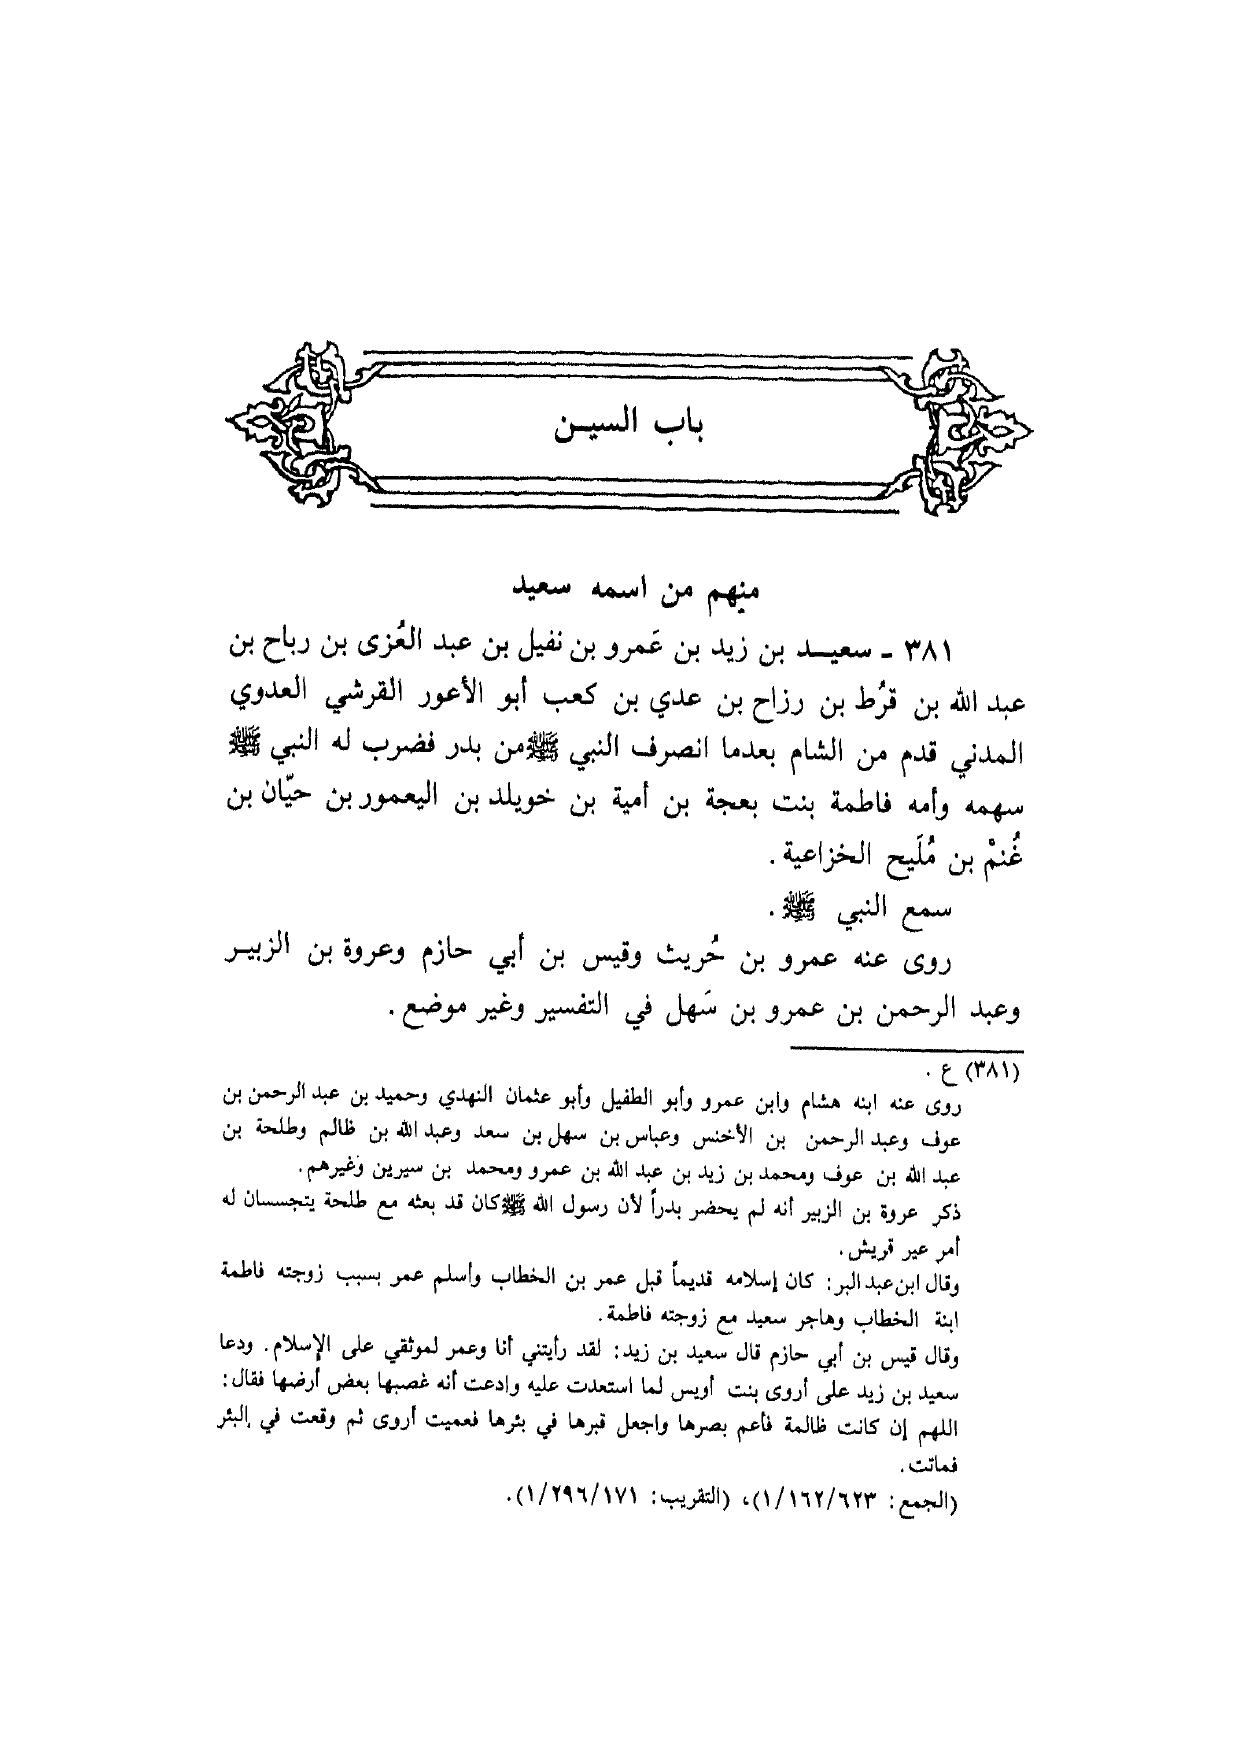 باب السيـن
منهم من اسمه سعيد
٣٨١ ـ سعيـــد بن زيد بن عَمرو بن نفيل بن عبد العُزى بن رباح بن
عبد الله بن قرُط بن رزاح بن عدي بن كعب أبو الأعور القرشي العدوي
المدني قدم من الشام بعدما انصرف النبي ﷺ من بدر فضرب له النبي ﷺ
سهمه وأمه فاطمة بنت بعجة بن أمية بن خويلد بن اليعمور بن حيّان بن
غُنمْ بن مُلَيح الخزاعية .
سمع النبي ﷺ .
روى عنه عمرو بن حُريث وقيس بن أبي حازم وعروة بن الزبيـر
وعبد الرحمن بن عمرو بن سَهل في التفسير وغير موضع .
(٣٨١) ع .
روى عنه ابنه هشام وابن عمرو وأبو الطفيل وأبو عثمان النهدي وحميد بن عبد الرحمن بن
عوف وعبد الرحمن بن الأخنس وعباس بن سهل بن سعد وعبد الله بن ظالم وطلحة بن
عبد الله بن عوف ومحمد بن زيد بن عبد الله بن عمرو ومحمد بن سيرين وغيرهم .
ذكر عروة بن الزبير أنه لم يحضر بدراً لأن رسول الله ﷺ كان قد بعثه مع طلحة يتجسسان له
أمر عير قريش .
وقال ابن عبد البر : كان إسلامه قديماً قبل عمر بن الخطاب وأسلم عمر بسبب زوجته فاطمة
ابنة الخطاب وهاجر سعيد مع زوجته فاطمة .
وقال قيس بن أبي حازم قال سعيد بن زيد : لقد رأيتني أنا وعمر لموثقي على الإسلام . ودعا
سعيد بن زيد على أروى بنت أويس لما استعدت عليه وادعت أنه غصبها بعض أرضها فقال :
اللهم إن كانت ظالمة فأعم بصرها واجعل قبرها في بئرها فعميت أروى ثم وقعت في البئر
فماتت .
(الجمع : ١/١٦٢/٦٢٣)، (التقريب : ١/٢٩٦/١٧١) .